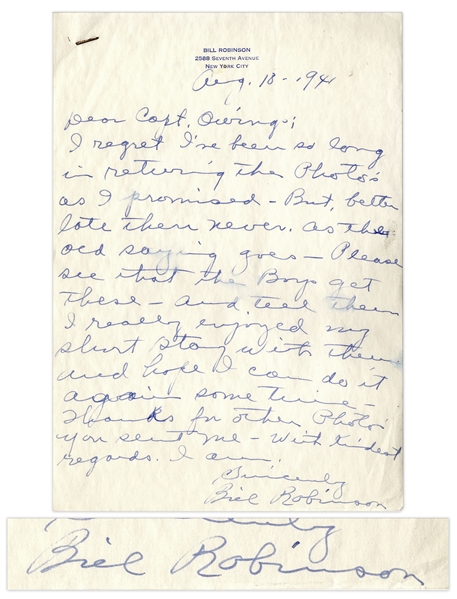 BILL ROBINSON
2588 SEVENTH AVENUE
NEW YORK CITY
Aug. 18-1941
Dear Capt. Owings;
I regret I've been so long
in returing the Photo's
as I promised - But, better
late then never. as the
old saying goes - Please
see that the Boys get
these - and tell them
I really enjoyed my
short stay with them
and hope I can do it
again some time -
Thanks for other Photo
you sent me - With kindest
regards. I am.
Sincerely
Bill Robinson
Sincerely
Bill Robinson